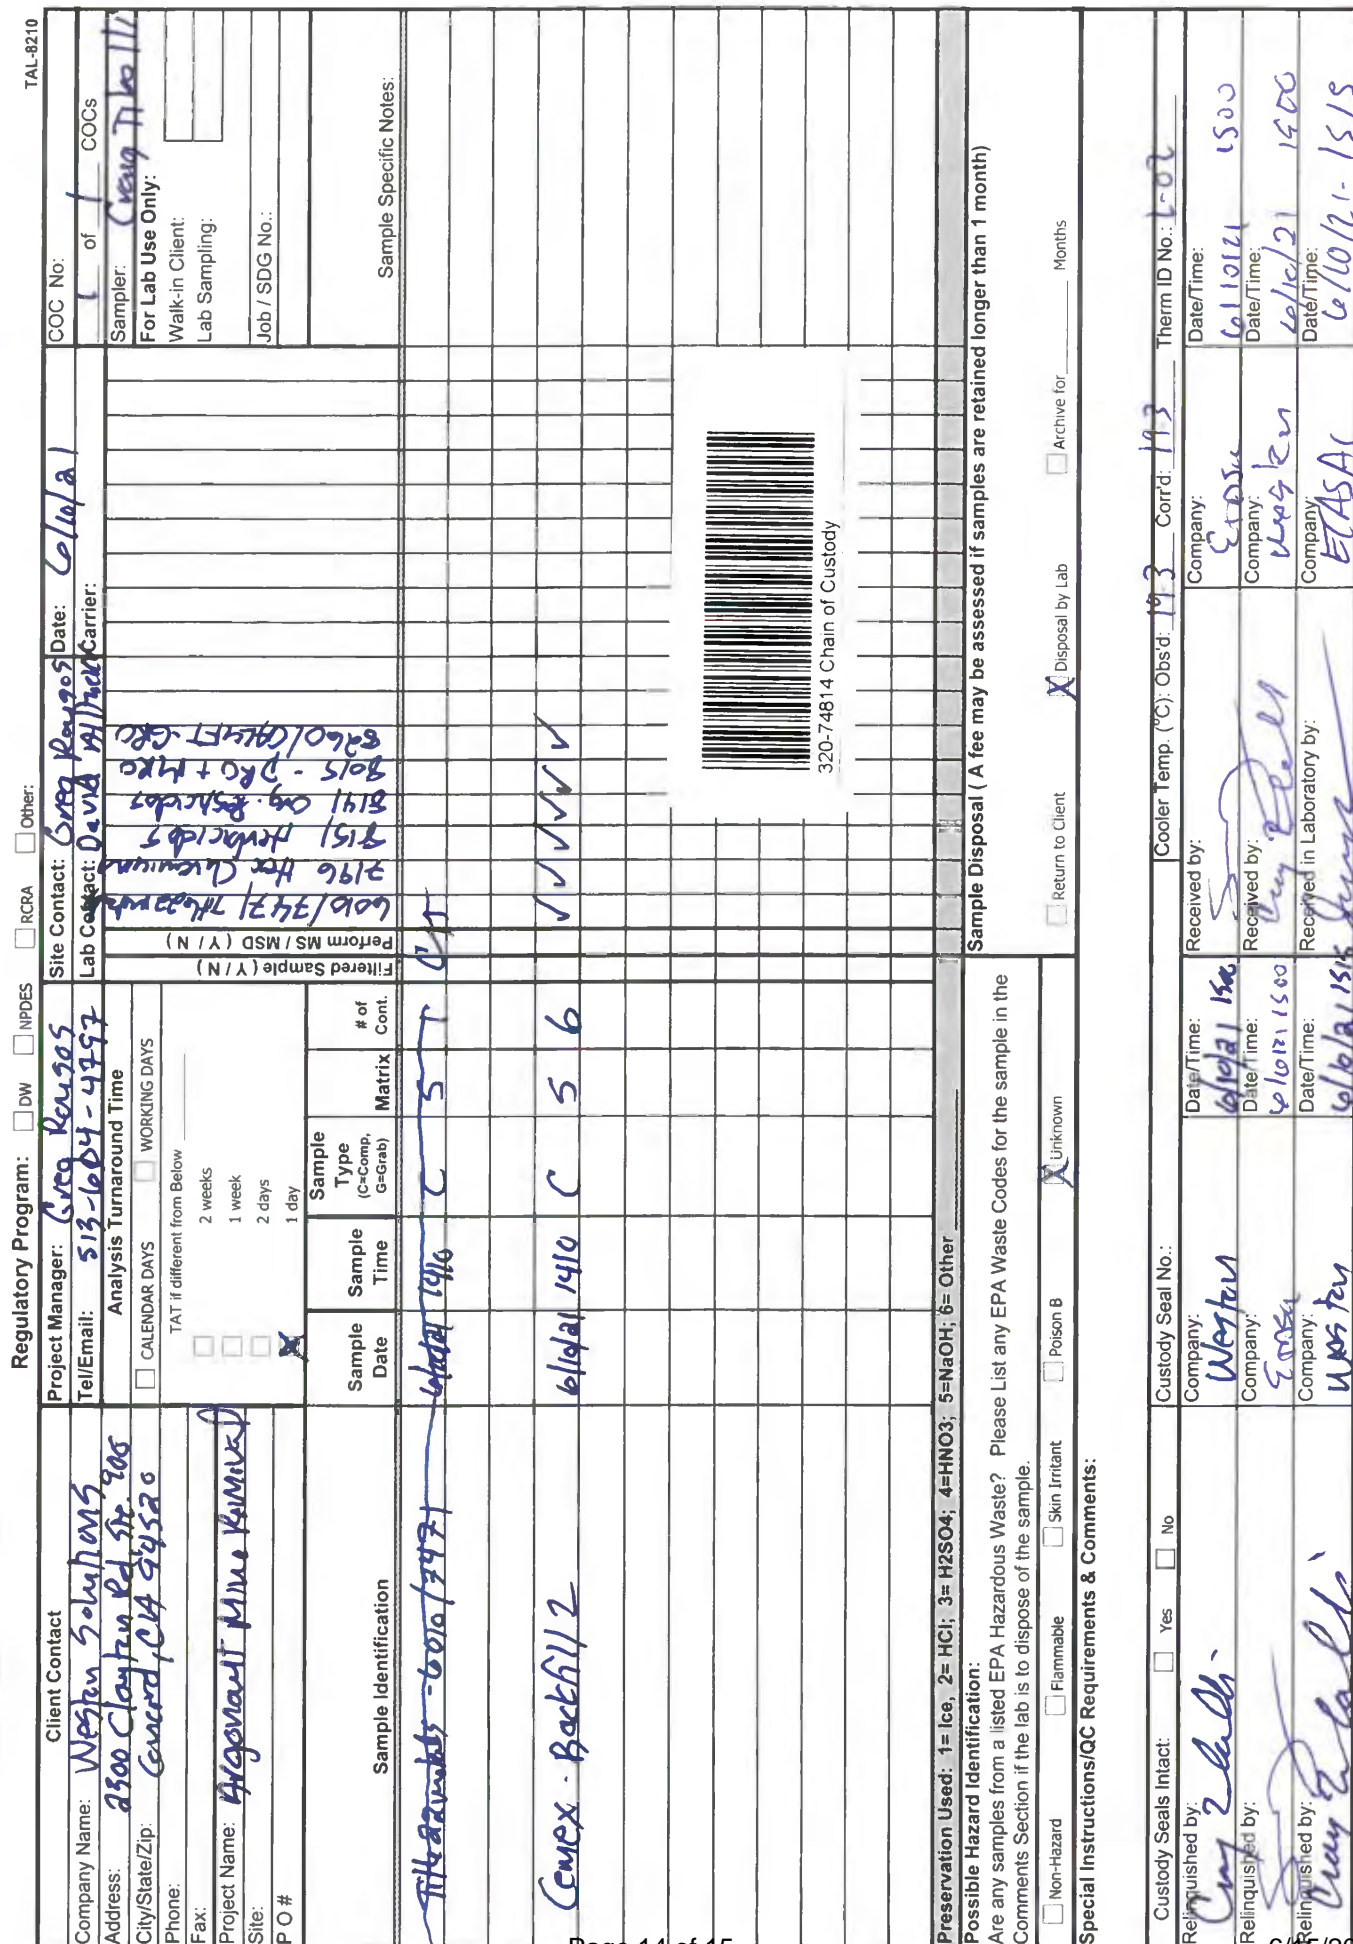 TAL-8210
Regulatory Program: DW NPDES RCRA Other:
Client Contact
Company Name: Weston Solutions
Address: 2300 Clayton Rd. Ste. 900
City/State/Zip: Concord, CA 94520
Phone:
Fax:
Project Name: Argonaut Mine Removal
Site:
P O #
Project Manager: Greg Rongos
Tel/Email: 513-604-4797
Analysis Turnaround Time
CALENDAR DAYS WORKING DAYS
TAT if different from Below
2 weeks
1 week
2 days
X 1 day
Site Contact: Greg Rongos
Lab Contact: David
Date: 6/10/21
Carrier:
COC No:
1 of 1 COCs
Sampler: Craig
For Lab Use Only:
Walk-in Client:
Lab Sampling:
Job / SDG No.:
Sample Identification
Sample Date
Sample Time
Sample Type (C=Comp, G=Grab)
Matrix
# of Cont.
Filtered Sample ( Y / N )
Perform MS / MSD ( Y / N )
6010/7471
7196 Hex Chromium
8151 Herbicides
8141 Org. Pesticides
8015 - DRO + MRO
8260/CALUFT-GRO
Sample Specific Notes:
6010/7471 6/10/21 1410 C S 1 CT
Cemex - Backfill 2 6/10/21 1410 C S 6 ✓ ✓ ✓ ✓ ✓ ✓
320-74814 Chain of Custody
Preservation Used: 1= Ice, 2= HCl; 3= H2SO4; 4=HNO3; 5=NaOH; 6= Other
Possible Hazard Identification:
Are any samples from a listed EPA Hazardous Waste? Please List any EPA Waste Codes for the sample in the
Comments Section if the lab is to dispose of the sample.
Non-Hazard Flammable Skin Irritant Poison B X Unknown
Sample Disposal ( A fee may be assessed if samples are retained longer than 1 month)
Return to Client X Disposal by Lab Archive for Months
Special Instructions/QC Requirements & Comments:
Custody Seals Intact: Yes No
Custody Seal No.:
Cooler Temp. (°C): Obs'd: 19.3 Corr'd: 19.3 Therm ID No.: L-02
Relinquished by:
Company: Weston
Date/Time: 6/10/21 1500
Received by:
Company:
Date/Time: 6/10/21 1500
Relinquished by:
Company:
Date/Time: 6/10/21 1500
Received by:
Company: Weston
Date/Time: 6/10/21 1500
Relinquished by:
Company: Weston
Date/Time: 6/10/21 1515
Received in Laboratory by:
Company: ETASAC
Date/Time: 6/10/21 - 1515
Page 14 of 15